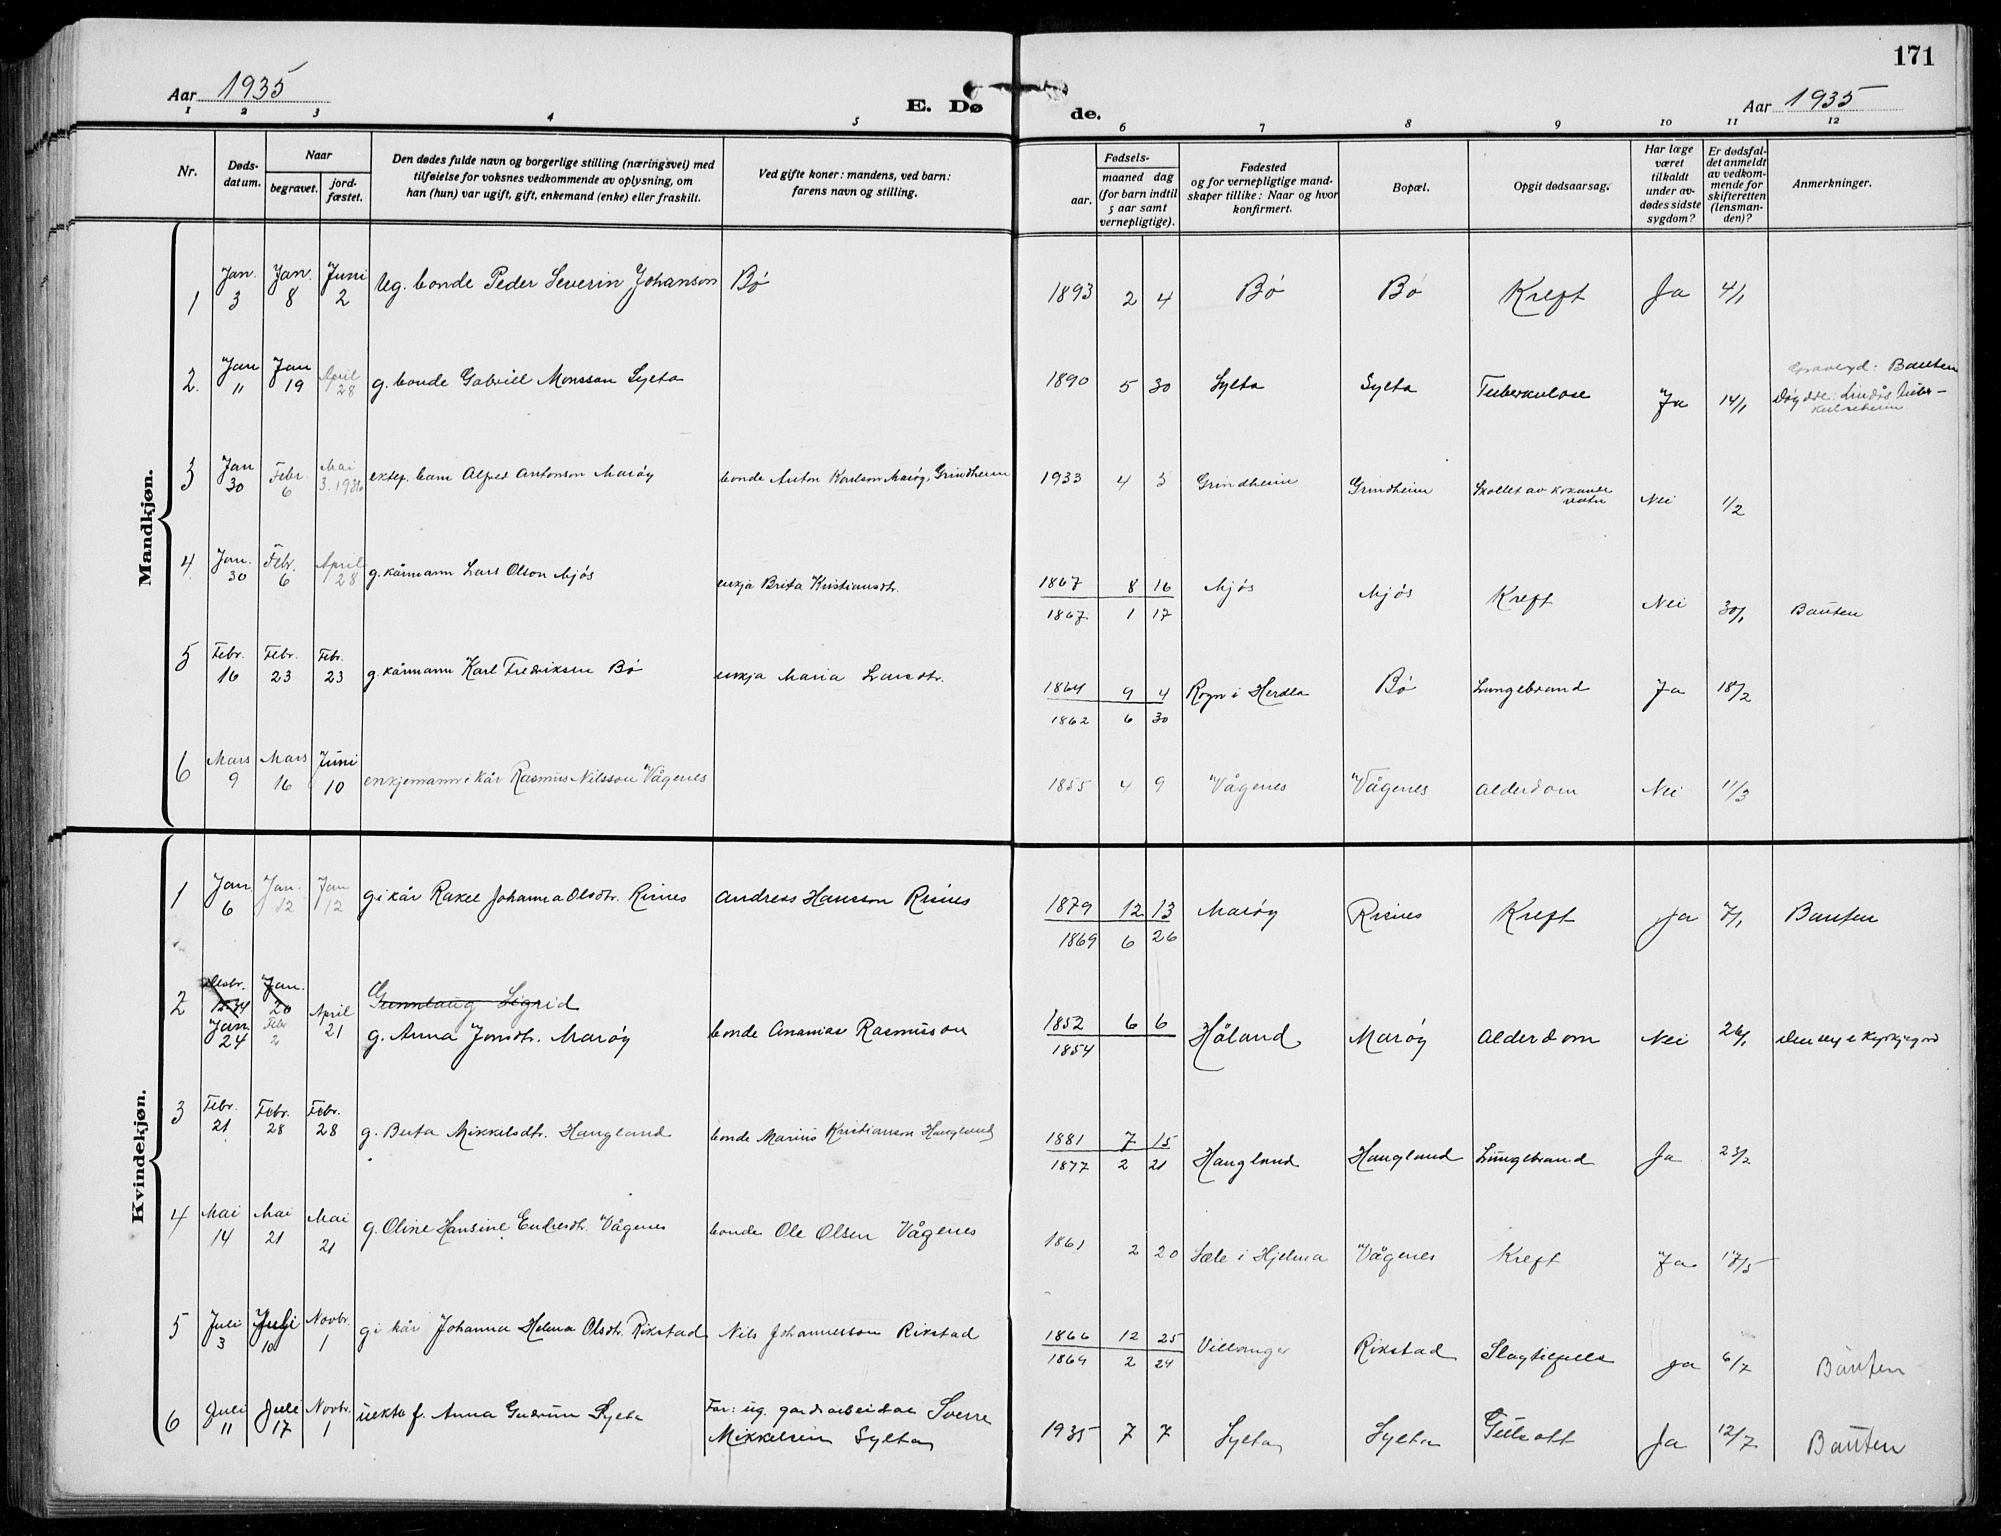 171
Aar 1935
E. Dø
de.
Aar 1935
1 2 3 4 5 6 7 8 9 10 11 12
Nr.
Døds-
datum.
Naar
begravet.
jord-
fæstet.
Den dødes fulde navn og borgerlige stilling (næringsvei) med
tilføielse for voksnes vedkommende av oplysning, om
han (hun) var ugift, gift, enkemand (enke) eller fraskilt.
Ved gifte koner: mandens, ved barn:
farens navn og stilling.
Fødsels-
aar.
maaned dag
(for barn indtil
5 aar samt
vernepligtige).
Fødested
og for vernepligtige mand-
skaper tillike: Naar og hvor
konfirmert.
Bopæl.
Opgit dødsaarsag.
Har læge
været
tilkaldt
under av-
dødes sidste
sygdom?
Er dødsfal-
det anmeldt
av vedkom-
mende for
skifteretten
(lensman-
den)?
Anmerkninger.
Mandkjøn.
1 Jan. 3 Jan. 8 Juni 2 Ug. bonde Peder Severin Johanson Bø 1893 2 4 Bø Bø Kreft Ja 4/1
2. Jan 11 Jan 19 April 28 g. bonde Gabriel Monsson Sylta 1890 5 30 Sylta Sylta Tuberkulose Ja 14/1 Bauten
3 Jan 30 Febr. 6 Mai 3. 1936 ektef. barn Alfred Antonson Marøy bonde Anton Karlson Marøy, Grindheim 1933 4 5 Grindheim Grindheim Skollet av kokande vatn Nei 1/2
4 Jan. 30 Febr. 6 April 28 g. kårmann Lars Olson Mjøs enkja Brita Kristiansdtr. 1867 8 16 Mjøs Mjøs Kreft Nei 30/1 Bauten
1867 1 17
5 Febr. 16 Febr. 23 Febr. 23 g. kårmann Karl Fredriksen Bø enkja Maria Larsdtr. 1864 9 4 Rogn i Herdla Bø Lungebrand Ja 18/2
1862 6 30
6 Mars 9 Mars 16 Juni 10 enkjemann i kår Rasmus Nilsson Vågenes 1855 4 9 Vågenes Vågenes Alderdom Nei 11/3
Kvindekjøn.
1 Jan 6 Jan. 12 Jan 12 g. i kår Rakel Johanna Olsdtr. Risnes Andreas Hansson Risnes 1879 12 13 Marøy Risnes Kreft Ja 7/1 Bauten
1869 6 26
2 Desbr. Jan. 20 Gunnlaug Sigrid
Jan 24 Febr 2 April 21 g. Anna Jonsdtr. Marøy bonde Ananias Rasmusson 1852 6 6 Håland Marøy Alderdom Nei 26/1
1854
3 Febr. 21 Febr. 28 Febr. 28 g. Berta Mikkelsdtr. Haugland bonde Marius Kristianson Haugland 1881 7 15 Haugland Haugland Lungebrand Ja 23/2
1877 2 21
4 Mai 14 Mai 21 Mai 21 g. Oline Hansine Endresdtr. Vågenes bonde Ole Olsen Vågenes 1861 2 20 Sæle i Hjelma Vågenes Kreft Ja 17/5
5 Juli 3 Juli 10 Novbr. 1 g. i kår Johanna Helena Olsdtr. Rikstad Nils Johannesson Rikstad 1866 12 25 Villanger Rikstad Slagtilfelle Ja 6/7 Bauten
1869 2 24
6 Juli 11 Juli 17 Novbr. 1 uekte f. Anna Gudrun Sylta Far: ug. gardsarbeidar Sverre 1935 7 7 Sylta Sylta Gulsott Ja 12/7 Bauten
Mikkelsen Sylta